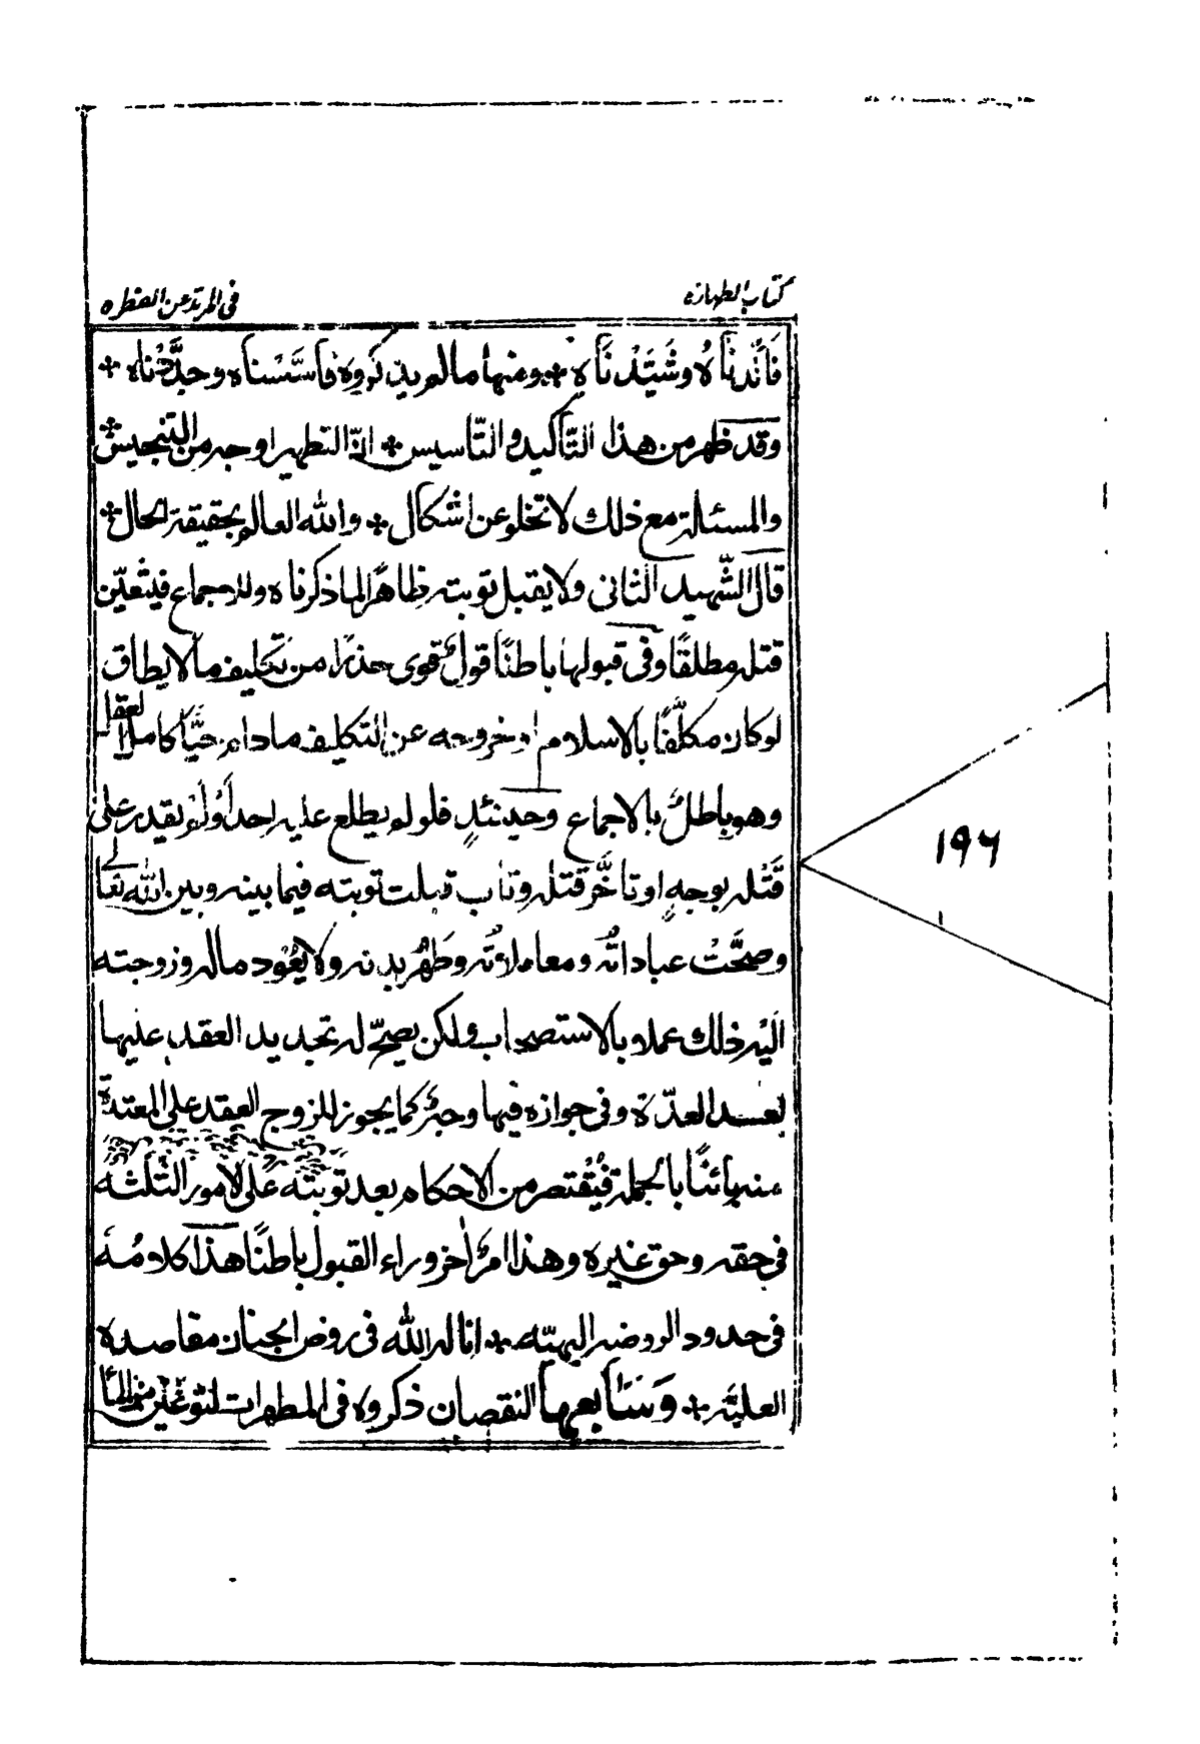 كتاب الطهارة
فى المرتد عن الفطره
فَأَيَّدْنَاهُ وشَيَّدْنَاهُ * ومنها مالم يذكروه فأسَّسْناه وحدَّدْناه *
وقد ظهر من هذا التأكيد والتّأسيس * انّ التطهير اوجه من التنجيس *
والمسئلة مع ذلك لا تخلو عن اشكال * والله العالم بحقيقة الحال *
قال الشّهيد الثانى ولا يقبل توبته ظاهرًا لما ذكرناه وللاجماع فيتعيّن
قتله مطلقًا وفى قبولها باطنًا قولٌ قوى حذرًا من تكليف ما لا يطاق
لو كان مكلَّفًا بالاسلام او خروجه عن التكليف مادام حيًّا كامل العقل
وهو باطلٌ بالاجماع وحينئذٍ فلو لم يطلع عليه احدٌ اَوْ لَمْ يقدر على
قَتْله بوجهٍ او تأخَّر قتله وتاب قبلت توبته فيما بينه وبين الله تعالى
وصحَّتْ عباداتُه ومعاملاتُه وطَهُر بدنه ولا يَعُود ماله وزوجته
اليْه ذلك عملا بالاستصحاب ولكن يصحّ له تجديد العقد عليها
بعد العدّة وفى جوازه فيها وجهٌ كما يجوز للزوج العقد على المعتدة
منه بائنًا بالجملة فيُقتصر من الاحكام بعد توبته على الامور الثَّلثة
فى حقه وحق غيره وهذا امرٌ اخر وراء القبول باطنًا هذا كلامُه
فى حدود الروضه البهيّه * اناله الله فى روض الجنان مقاصده
العليّه * وَسَابعها النقصان ذكروه فى المطهرات لنوعَيْن من الماء
١٩٦